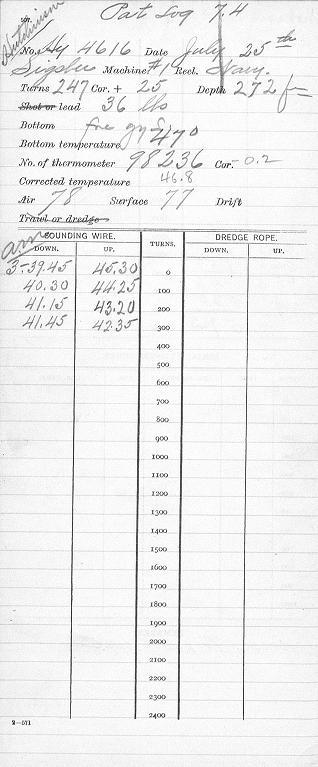 Pat Log 7.4
Hutchinson
No. Hy 4616 Date July 25th
Sigsbee Machine #1 Reel. Navy.
Turns 247 Cor. + 25 Depth 272 fm
Shot or lead 36 lbs
Bottom fne gy S
Bottom temperature 47.0
No. of thermometer 98236 Cor. -0.2
Corrected temperature 46.8
Air 78 Surface 77 Drift
Trawl or dredge
am
SOUNDING WIRE. TURNS. DREDGE ROPE.
DOWN. UP. DOWN. UP.
3-39.45 45.30 0
40.30 44.25 100
41.15 43.20 200
41.45 42.35 300
400
500
600
700
800
900
1000
1100
1200
1300
1400
1500
1600
1700
1800
1900
2000
2100
2200
2300
2400
2—571